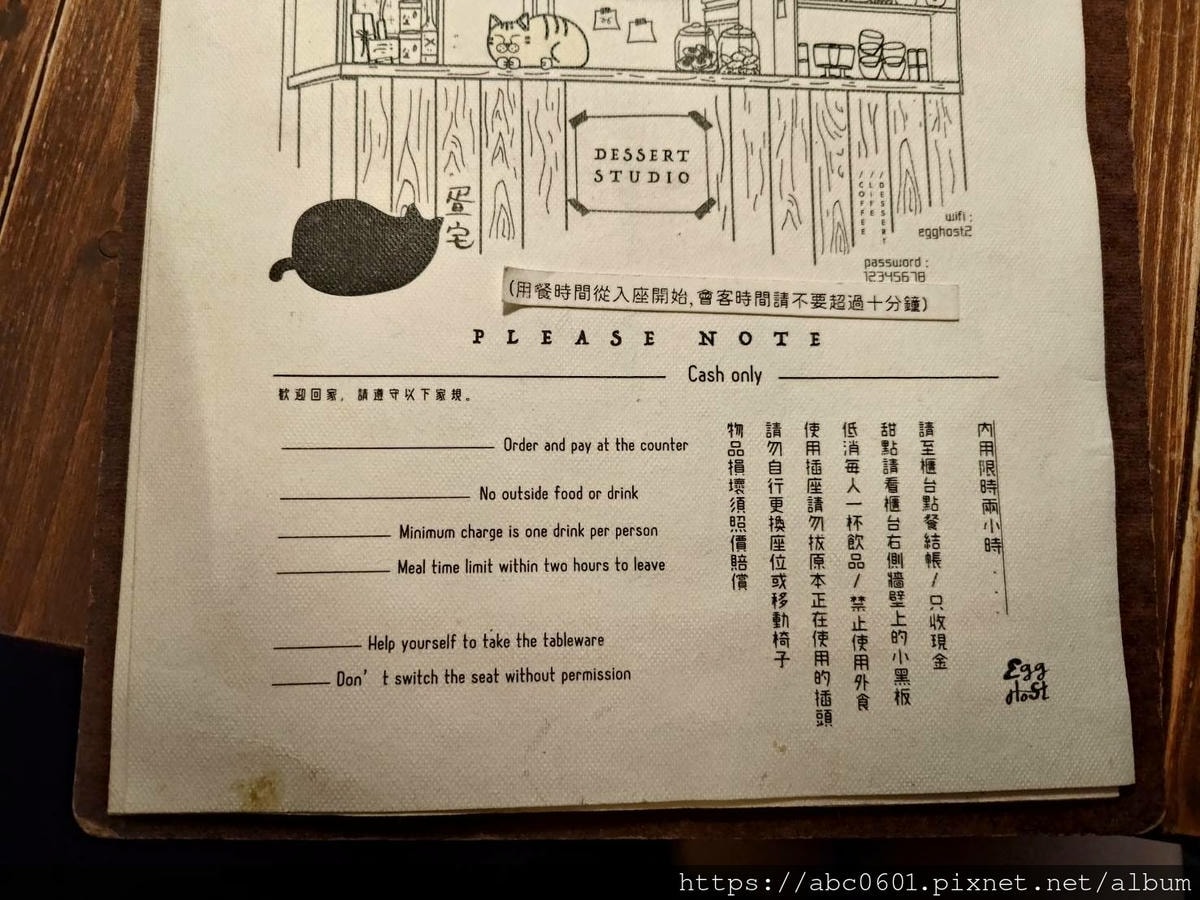 DESSERT
STUDIO
蛋宅
//COFFEE
//LIFE
//DESSERT
wifi :
egghost2
password :
12345678
(用餐時間從入座開始,會客時間請不要超過十分鐘)
PLEASE NOTE
Cash only
歡迎回家, 請遵守以下家規。
Order and pay at the counter
No outside food or drink
Minimum charge is one drink per person
Meal time limit within two hours to leave
Help yourself to take the tableware
Don't switch the seat without permission
內用限時兩小時...
請至櫃台點餐結帳/只收現金
甜點請看櫃台右側牆壁上的小黑板
低消每人一杯飲品/禁止使用外食
使用插座請勿拔原本正在使用的插頭
請勿自行更換座位或移動椅子
物品損壞須照價賠償
Egg
Host
https://abc0601.pixnet.net/album